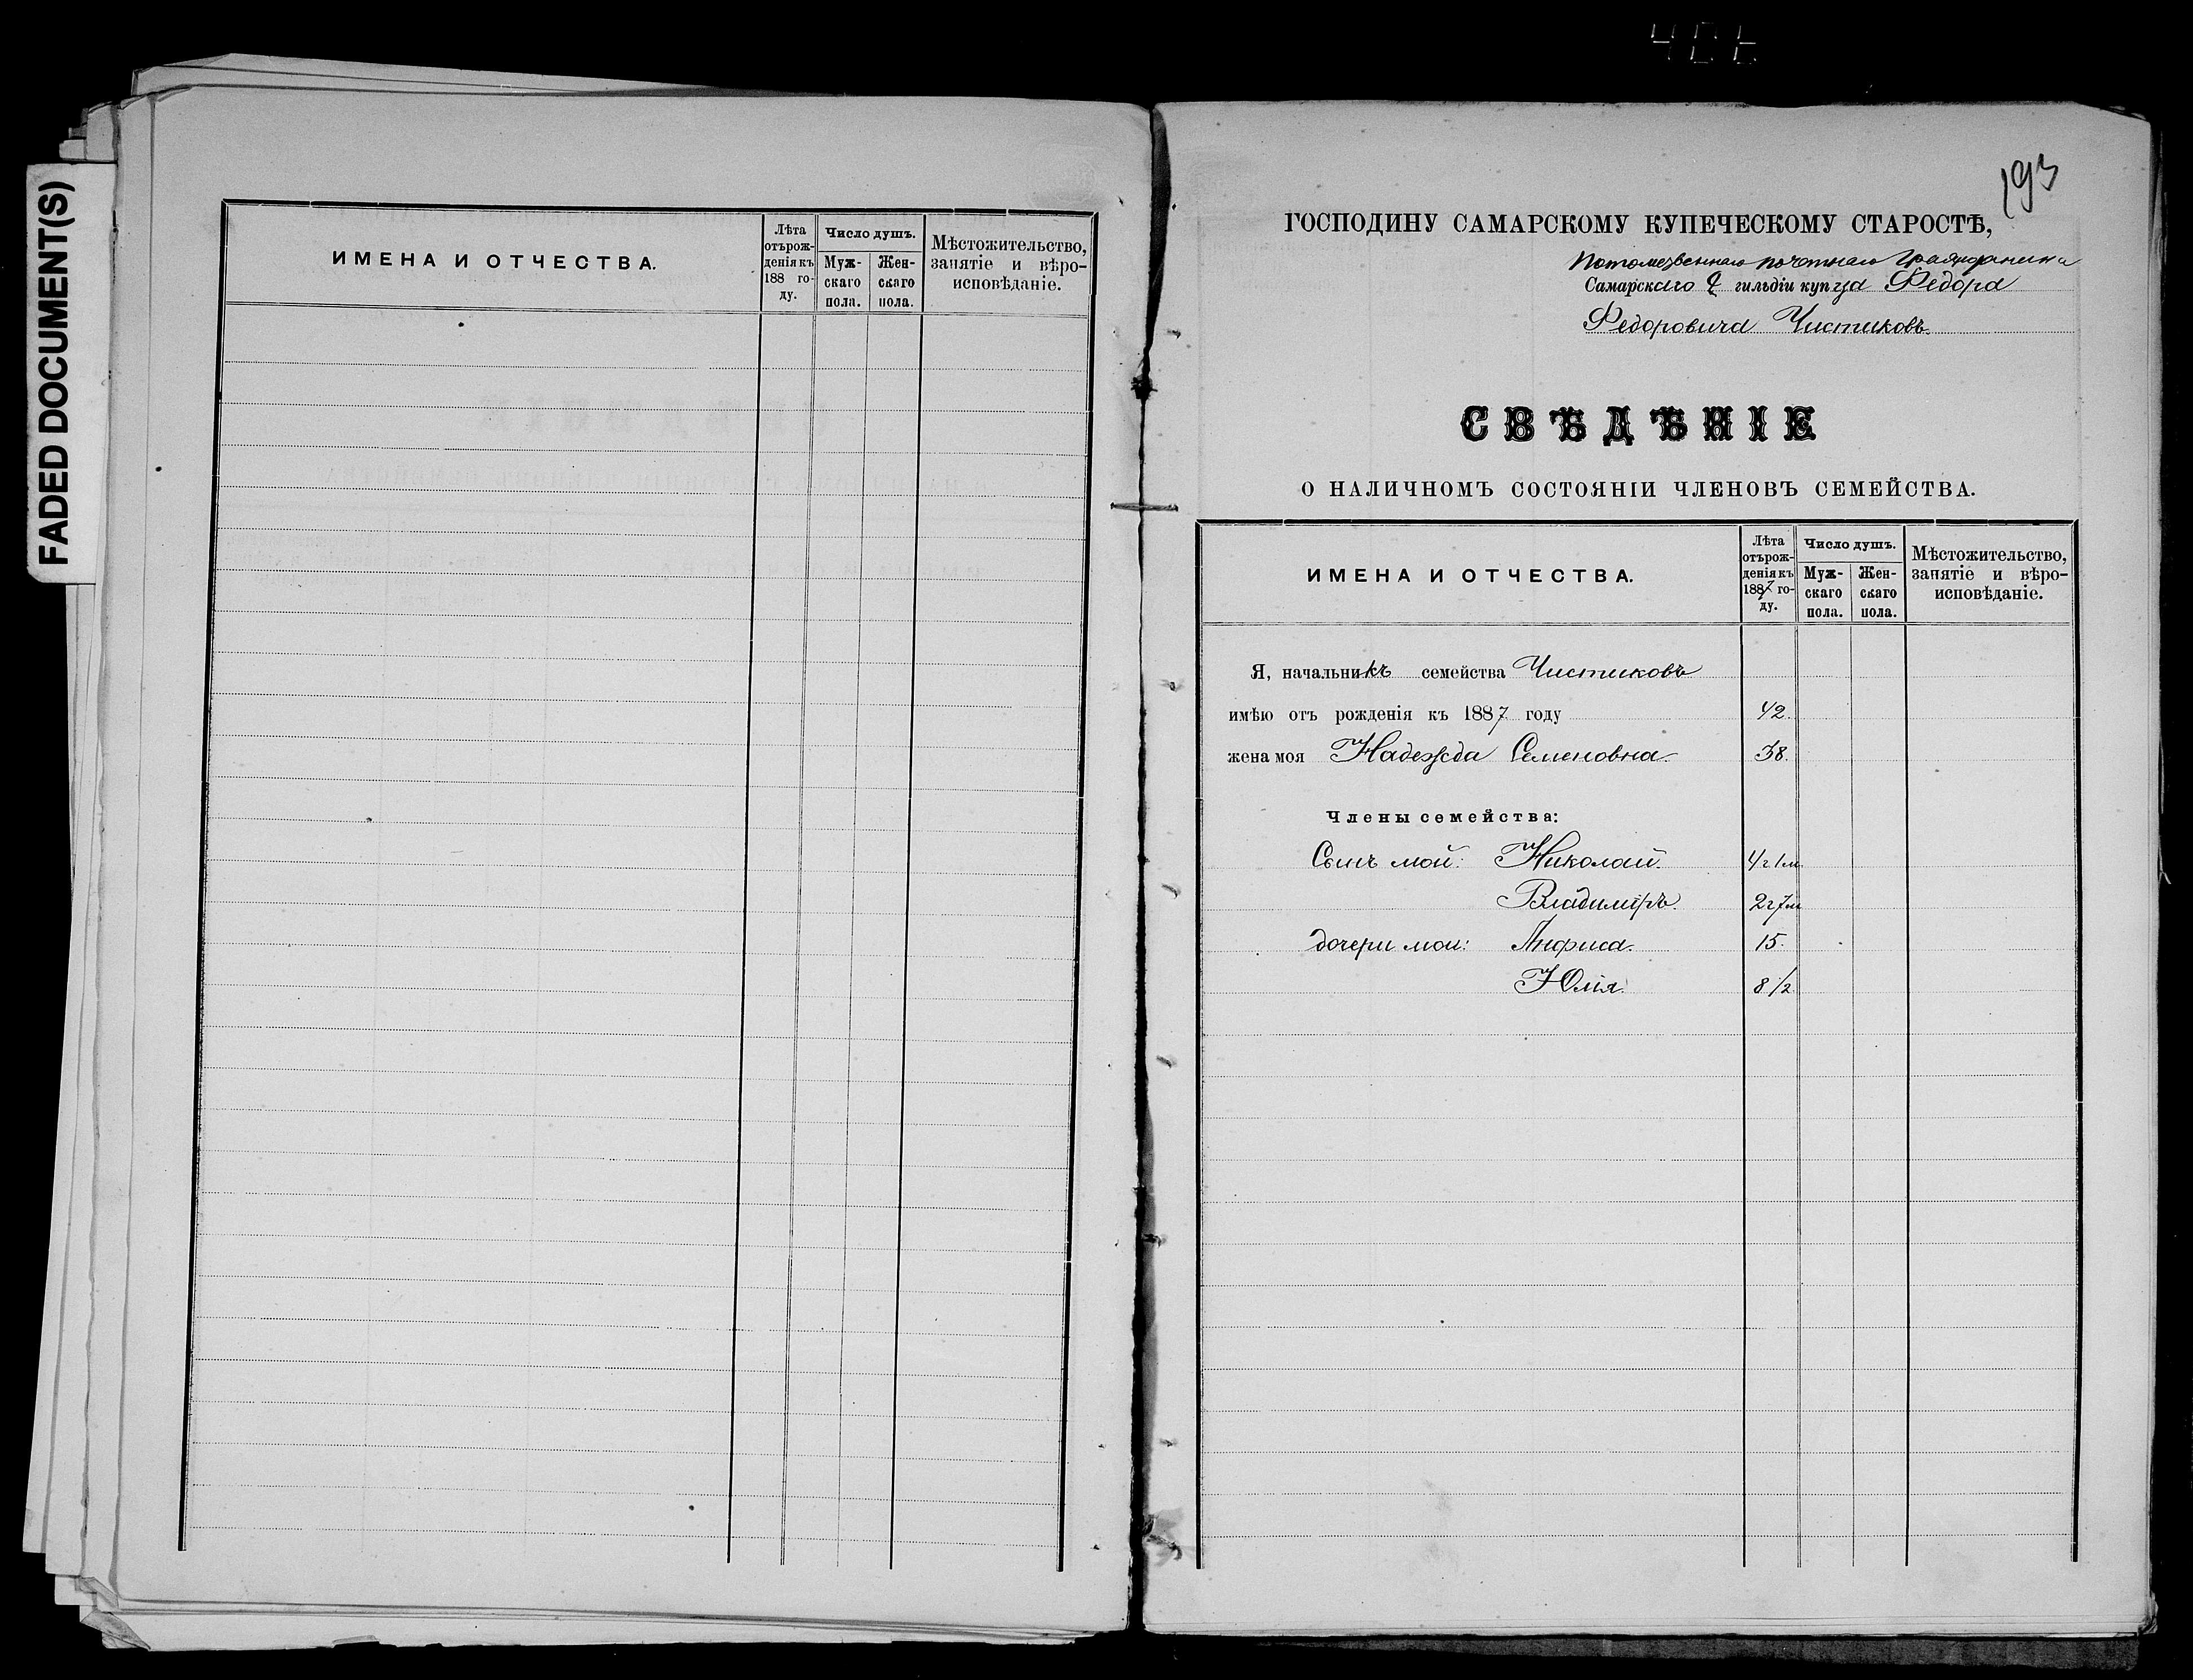 FADED DOCUMENT(S)
ИМЕНА И ОТЧЕСТВА.
Лѣта
отърож-
деніякъ
188 го-
ду.
Число душъ.
Муж-
скаго
пола.
Жен-
скаго
пола.
Мѣстожительство,
занятіе и вѣро-
исповѣданіе.
193
ГОСПОДИНУ САМАРСКОМУ КУПЕЧЕСКОМУ СТАРОСТѢ,
Потомственнаго почотнаго Гражданина
Самарскаго 2 гильдіи купца Федора
Федоровича Чистиковъ.
СВѢДѢНІЕ
О НАЛИЧНОМЪ СОСТОЯНІИ ЧЛЕНОВЪ СЕМЕЙСТВА.
ИМЕНА И ОТЧЕСТВА.
Лѣта
отърож-
деніякъ
1887 го-
ду.
Число душъ.
Муж-
скаго
пола.
Жен-
скаго
пола.
Мѣстожительство,
занятіе и вѣро-
исповѣданіе.
Я, начальникъ семейства Чистиковъ
имѣю отъ рожденія къ 1887 году 42.
жена моя Надежда Семеновна. 38.
Члены семейства:
Сынъ мой: Николай. 4г 1м.
Владиміръ. 2г 7м
дочери мои: Анфиса. 15.
Юлія. 8 1/2